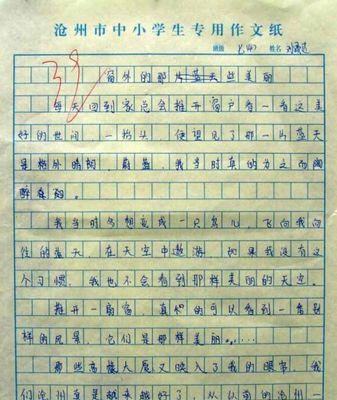 沧州市中小学生专用作文纸
班级 姓名
38
窗外的那片蓝天些美丽
每天回到家总会推开窗户看一看这美
好的世间 一抬头 便望见了那一片蓝天
是格外晴朗，蔚蓝，我当时真的为之而陶
醉
我当时多想变成一只鸟儿，飞向我向
往的蓝天，在天空中遨游，如果我没有这
个习惯，我也不会看到那样美丽的天空。
推开一扇窗，真的可以看到一番别
样的风景，它们是那样美丽……
那些高楼大厦又映入了我的眼帘，我
们沧州真是越来越好了，从以前的沧州一